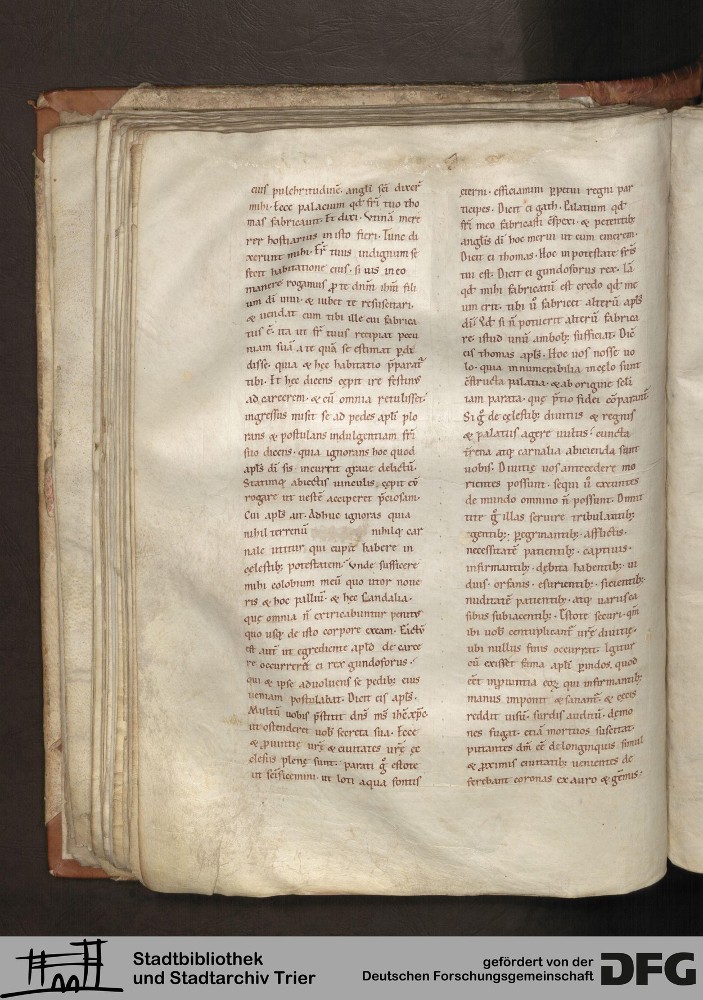 eius pulchritudinē. angli sc̄i dixer̄
mihi. Ecce palacium qd̄ fr̄i tuo tho
mas fabricauit. Et dixi. Vtinā mere
rer hostiarius in isto fieri. Tunc di
xerunt mihi. Fr̄ tuus indignum se
fecit habitatione eius. si uis in eo
manere rogamus ꝓ te dn̄m ihm̄ fili
um dī uiui. & iubet te resuscitari.
& uendat eum tibi ille cui fabrica
tus ē. ita ut fr̄ tuus recipiat pecu
niam suā. a te quā se estimat ꝑdi
disse. quia & hec habitatio p̄parat
tibi. Et hec dicens cepit ire festinus
ad carcerem. & cū omnia retulisset.
ingressus misit se ad pedes apl̄i plo
rans & postulans indulgentiam fr̄i
suo dicens. quia ignorans hoc quod
apl̄s dī sis incurrit graue delictū.
Statimq; abiectis uinculis. cępit eū
rogare ut uestē acciperet p̄ciosam.
Cui apl̄s ait. Adhuc ignoras quia
nihil terrenū nihilq; car
nale utitur qui cupit habere in
cęlestib; potestatem. Vnde sufficere
mihi colobium meū quo utor noue
ris & hoc palliū. & hęc sandalia.
quę omnia n̄ exuicabuntur penitus
quo usq; de isto corpore exeam. Factū
est aut̄ ut egrediente apl̄o de carce
re occurreret ei rex gundoforus.
qui & ipse aduoluens se pedib; eius
ueniam postulabat. Dicit eis apl̄s.
Multū uobis p̄stitit dn̄s m̄s ihc̄ xp̄c
ut ostenderet uob̄ secreta sua. Ecce
& ꝓuintię urę̄ & ciuitates urę̄ ec
clesiis plenę sunt. parati ḡ estote
in sc̄ificemini. ut loti aqua fontis
ęterni. efficiamini ꝑpetui regni par
ticipes. Dicit ei gath. Palatium qd̄
fr̄i meo fabricasti c̄spexi. & petentib;
anglis dī hoc merui ut eum emerem.
Dicit ei thomas. Hoc in potestate fr̄is
tui est. Dicit ei gundoforus rex. Iā
qd̄ mihi fabricatū est credo qd̄ me
um erit. tibi ū fabricet alterū apl̄s
dī. Qd̄ si n̄ potuerit alterū fabrica
re. istud unū ambob; sufficiat. Dic̄
eis thomas apl̄s. Hoc uos nosse uo
lo. quia innumerabilia in cęlo sunt
c̄structa palatia. & ab origine sęli
iam parata. quę p̄tio fidei cōparant̄.
Si ḡ de cęlestib; diuitiis & regnis
& palatiis agere uultis. cuncta
t̄rena atq; carnalia abicienda sunt
uobis. Diuitię uos antecedere mo
rientes possunt. sequi ū exeuntes
de mundo omnino n̄ possunt. Dimit
titę ḡ illas seruire tribulantib;
egentib; peregrinantib; afflictis.
necessitatē patientib; captiuis.
infirmantib; debita habentib; ui
duis. orfanis. esurientib; sicientib;
nuditatē patientib; atq; uariis ca
sibus subiacentib; Estote securi. qm̄
ibi uob̄ centuplicant̄ urę̄ diuitię.
ubi nullus finis occurrit. Igitur
cū exisset fama apl̄i ꝑ indos. quod
eēt in ꝓuintia eoꝝ qui infirmantib;
manus imponit & sanant̄. & cęcos
reddit uisū. surdis auditū. demo
nes fugat. etiā mortuos suscitat.
putantes dm̄ eē de longinquis simul
& ꝓximis ciuitatib; uenientes de
ferebant coronas ex auro & gēmis.
Stadtbibliothek
und Stadtarchiv Trier
gefördert von der
Deutschen Forschungsgemeinschaft
DFG